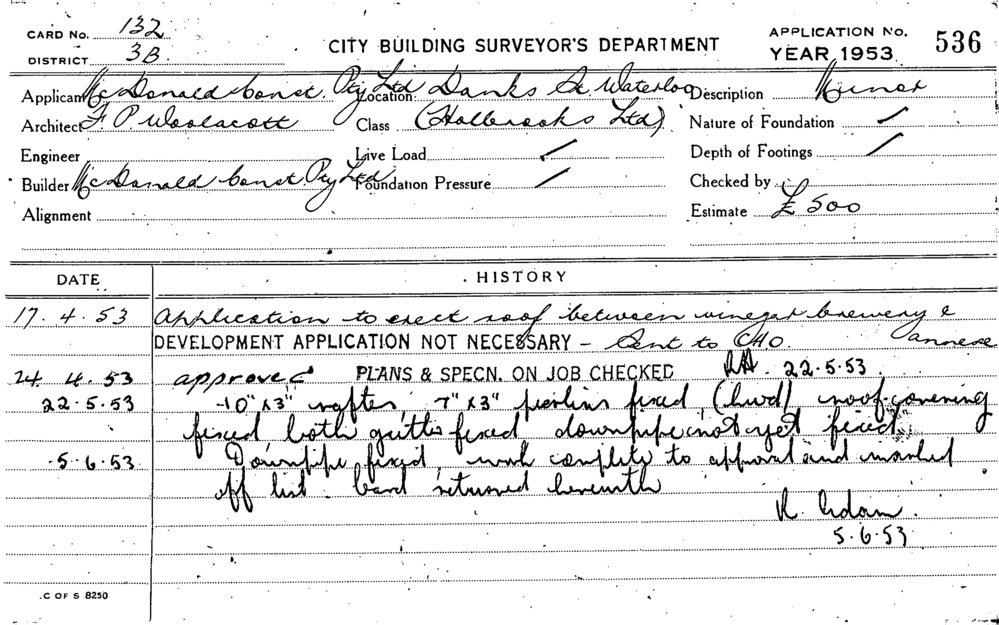 CARD No. 132
DISTRICT 3B
CITY BUILDING SURVEYOR'S DEPARTMENT
APPLICATION No. 536
YEAR 1953
Applicant McDonald Const. Pty Ltd Location Danks St. Waterloo Description Minor
Architect F. P. Woolacott Class (Holbrooks Ltd) Nature of Foundation /
Engineer Live Load / Depth of Footings /
Builder McDonald Const. Pty Ltd Foundation Pressure / Checked by
Alignment Estimate £500
DATE HISTORY
17.4.53 Application to erect roof between vinegar brewery &
DEVELOPMENT APPLICATION NOT NECESSARY - Sent to CHO. annexe
24.4.53 approved PLANS & SPECN. ON JOB CHECKED 22.5.53
22.5.53 -10"x3" rafters, 7"x3" purlins fixed, (hwd) roof-covering
fixed, both gutters fixed downpipe not yet fixed.
5.6.53 Downpipe fixed, work complete to approval and marked
off list. Card returned herewith
R. Adam.
5.6.53
C OF S 8250